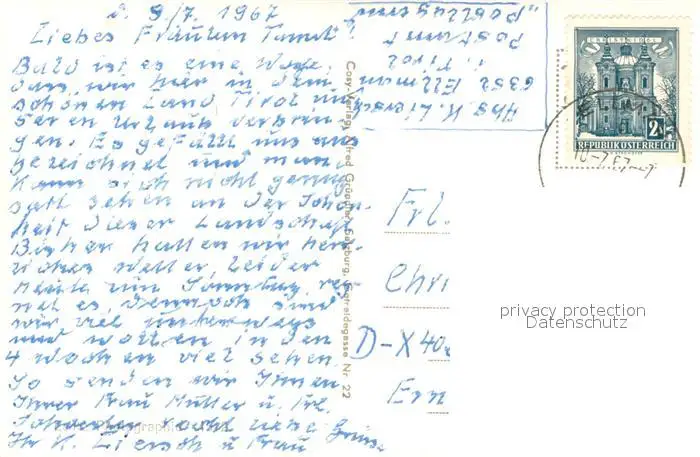 d. 9/7. 1967
Liebes Fräulein
Bald ist es eine Woche,
dass wir hier in dem
schönen Land Tirol un
seren Urlaub verbrin
gen. Es gefällt uns aus
gezeichnet und man
kann sich nicht genug
satt sehen an der Schön
heit dieser Landschaft
Bisher hatten wir herr
liches Wetter, leider
heute zum Sonntag, reg
net es, dennoch sind
wir viel unterwegs
und wollen in den
4 Wochen viel sehen.
So senden wir Ihnen
Ihrer Frau Mutter u. Frl.
Schwester recht liebe Grüsse
Ihr K. Liersch u Frau
"Postlagernd"
Postamt
i. Tirol
6352 Ellmau
Abs K. Liersch
Cosy-Verlag, Alfred Gründler, Salzburg, Getreidegasse Nr. 22
CHRISTKINDL
2
REPUBLIK ÖSTERREICH
10-7.67
Frl.
Chri
D-X 40
privacy protection
Datenschutz